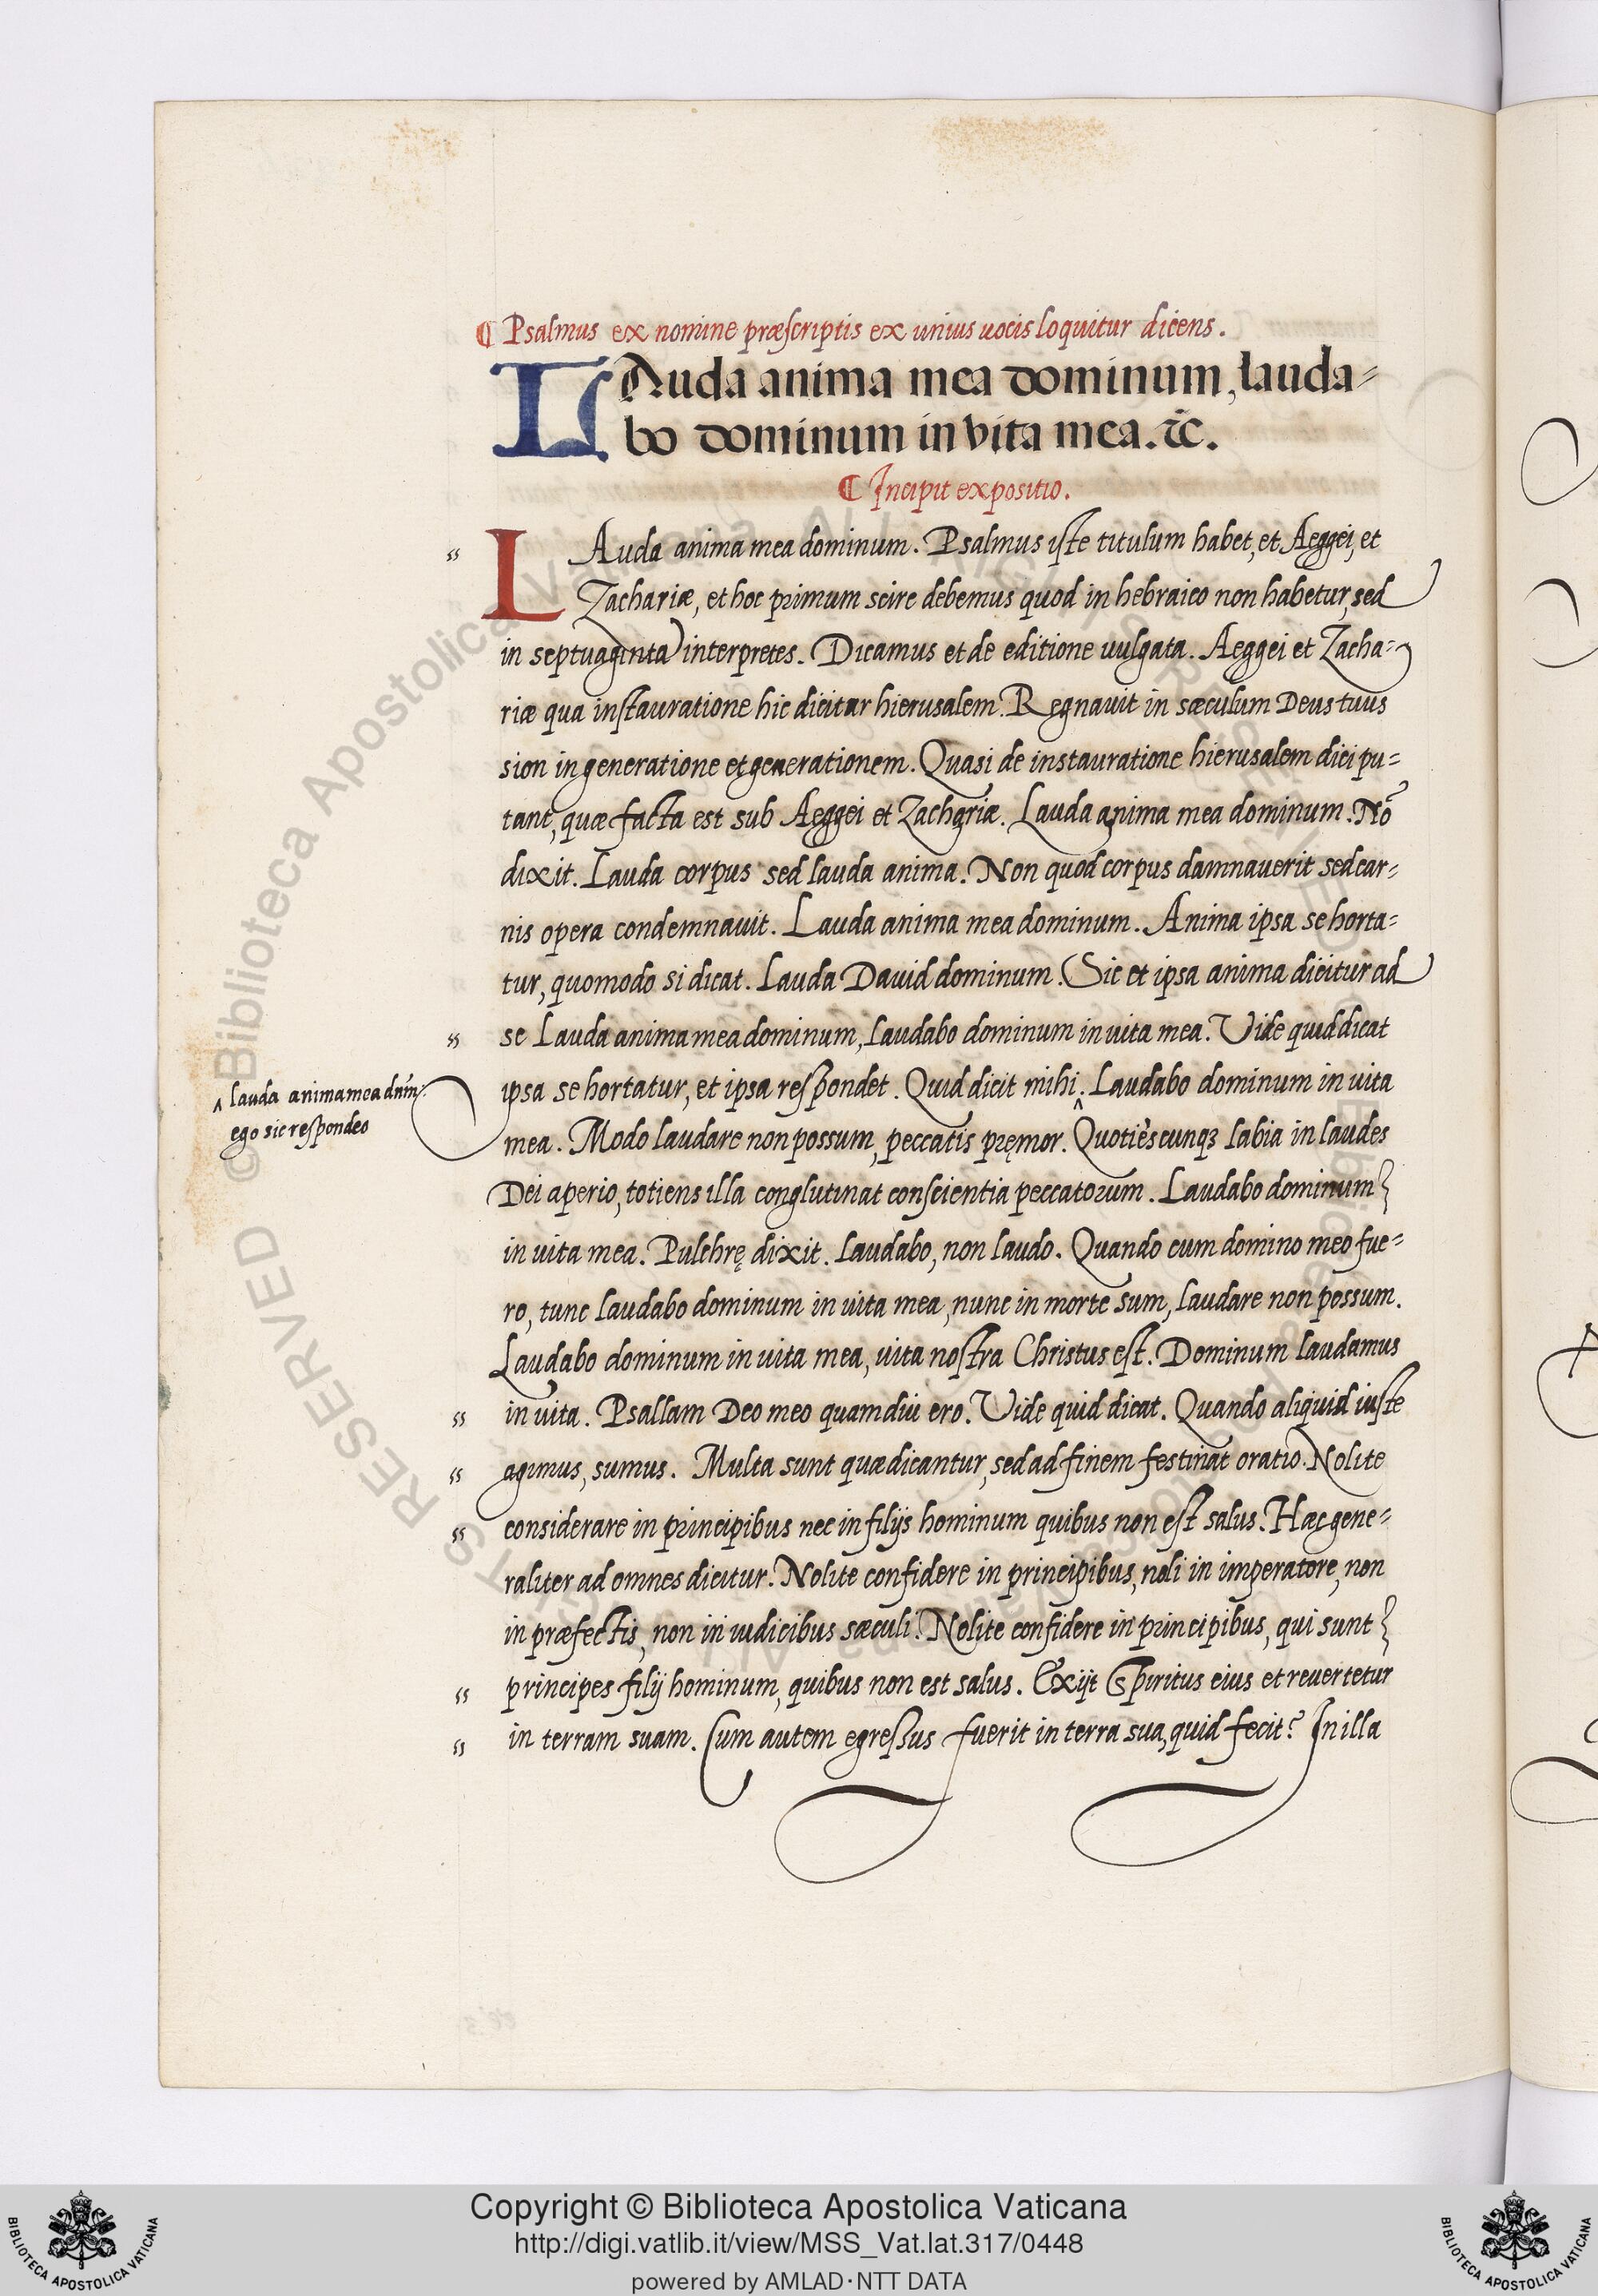 ¶ Psalmus ex nomine præscriptis ex unius uocis loquitur dicens.
LAuda anima mea dominum, lauda=
bo dominum in vita mea. &c.
¶ Incipit expositio.
LAuda anima mea dominum. Psalmus iste titulum habet, et Aeggei, et
Zachariæ, et hoc primum scire debemus quod in hebraico non habetur, sed
in septuaginta interpretes. Dicamus et de editione uulgata. Aeggei et Zacha=
riæ qua instauratione hic dicitur hierusalem. Regnauit in sæculum Deus tuus
sion in generatione et generationem. Quasi de instauratione hierusalem dici pu=
tant, quæ facta est sub Aeggei et Zachariæ. Lauda anima mea dominum. Nō
dixit. Lauda corpus sed lauda anima. Non quod corpus damnauerit sed car=
nis opera condemnauit. Lauda anima mea dominum. Anima ipsa se horta=
tur, quomodo si dicat. Lauda Dauid dominum. Sic et ipsa anima dicitur ad
se Lauda anima mea dominum, laudabo dominum in uita mea. Vide quid dicat
ipsa se hortatur, et ipsa respondet. Quid dicit mihi ^. Laudabo dominum in uita
^ lauda anima mea dnm̄.
ego sic respondeo
mea. Modo laudare non possum, peccatis pręmor. Quotiescunqꝫ labia in laudes
Dei aperio, totiens illa conglutinat conscientia peccatorum. Laudabo dominum
in uita mea. Pulchrę dixit. Laudabo, non laudo. Quando cum domino meo fue=
ro, tunc laudabo dominum in uita mea, nunc in morte sum, laudare non possum.
Laudabo dominum in uita mea, uita nostra Christus est. Dominum laudamus
in uita. Psallam Deo meo quamdiu ero. Vide quid dicat. Quando aliquid iuste
agimus, sumus. Multa sunt quæ dicantur, sed ad finem festinat oratio. Nolite
considerare in principibus nec in filijs hominum quibus non est salus. Hæc gene=
raliter ad omnes dicitur. Nolite confidere in principibus, noli in imperatore, non
in præfectis, non in iudicibus sæculi. Nolite confidere in principibus, qui sunt
principes filij hominum, quibus non est salus. Exijt Spiritus eius et reuertetur
in terram suam. Cum autem egressus fuerit in terra sua, quid fecit? In illa
Copyright © Biblioteca Apostolica Vaticana
http://digi.vatlib.it/view/MSS_Vat.lat.317/0448
powered by AMLAD·NTT DATA
BIBLIOTECA APOSTOLICA VATICANA
BIBLIOTECA APOSTOLICA VATICANA